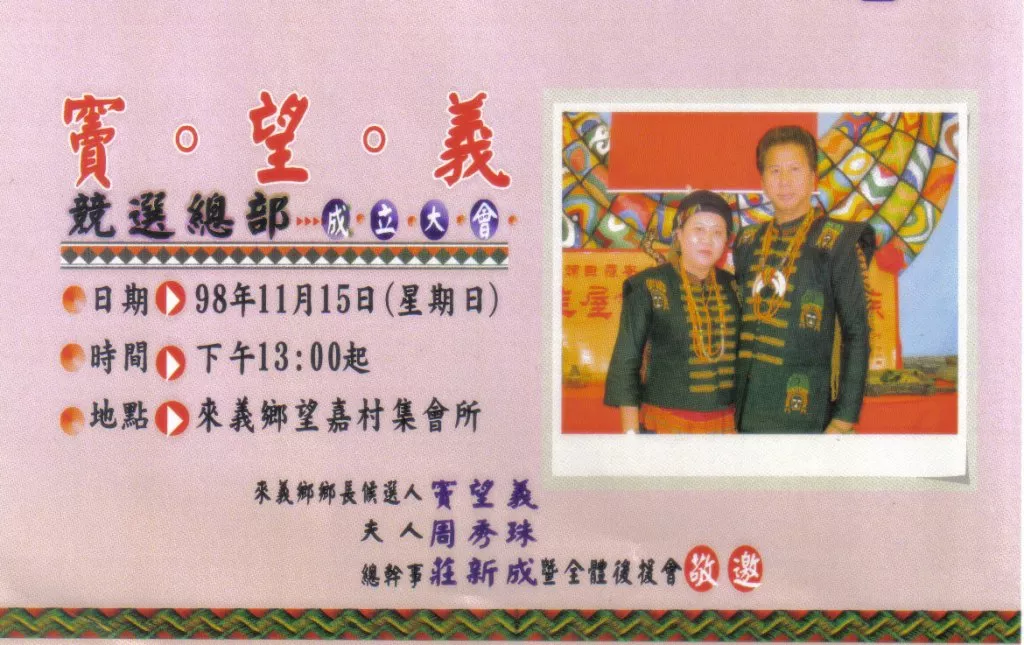 竇。望。義
競選總部成立大會
日期 98年11月15日(星期日)
時間 下午13:00起
地點 來義鄉望嘉村集會所
來義鄉鄉長候選人竇望義
夫人周秀珠
總幹事莊新成暨全體後援會敬邀